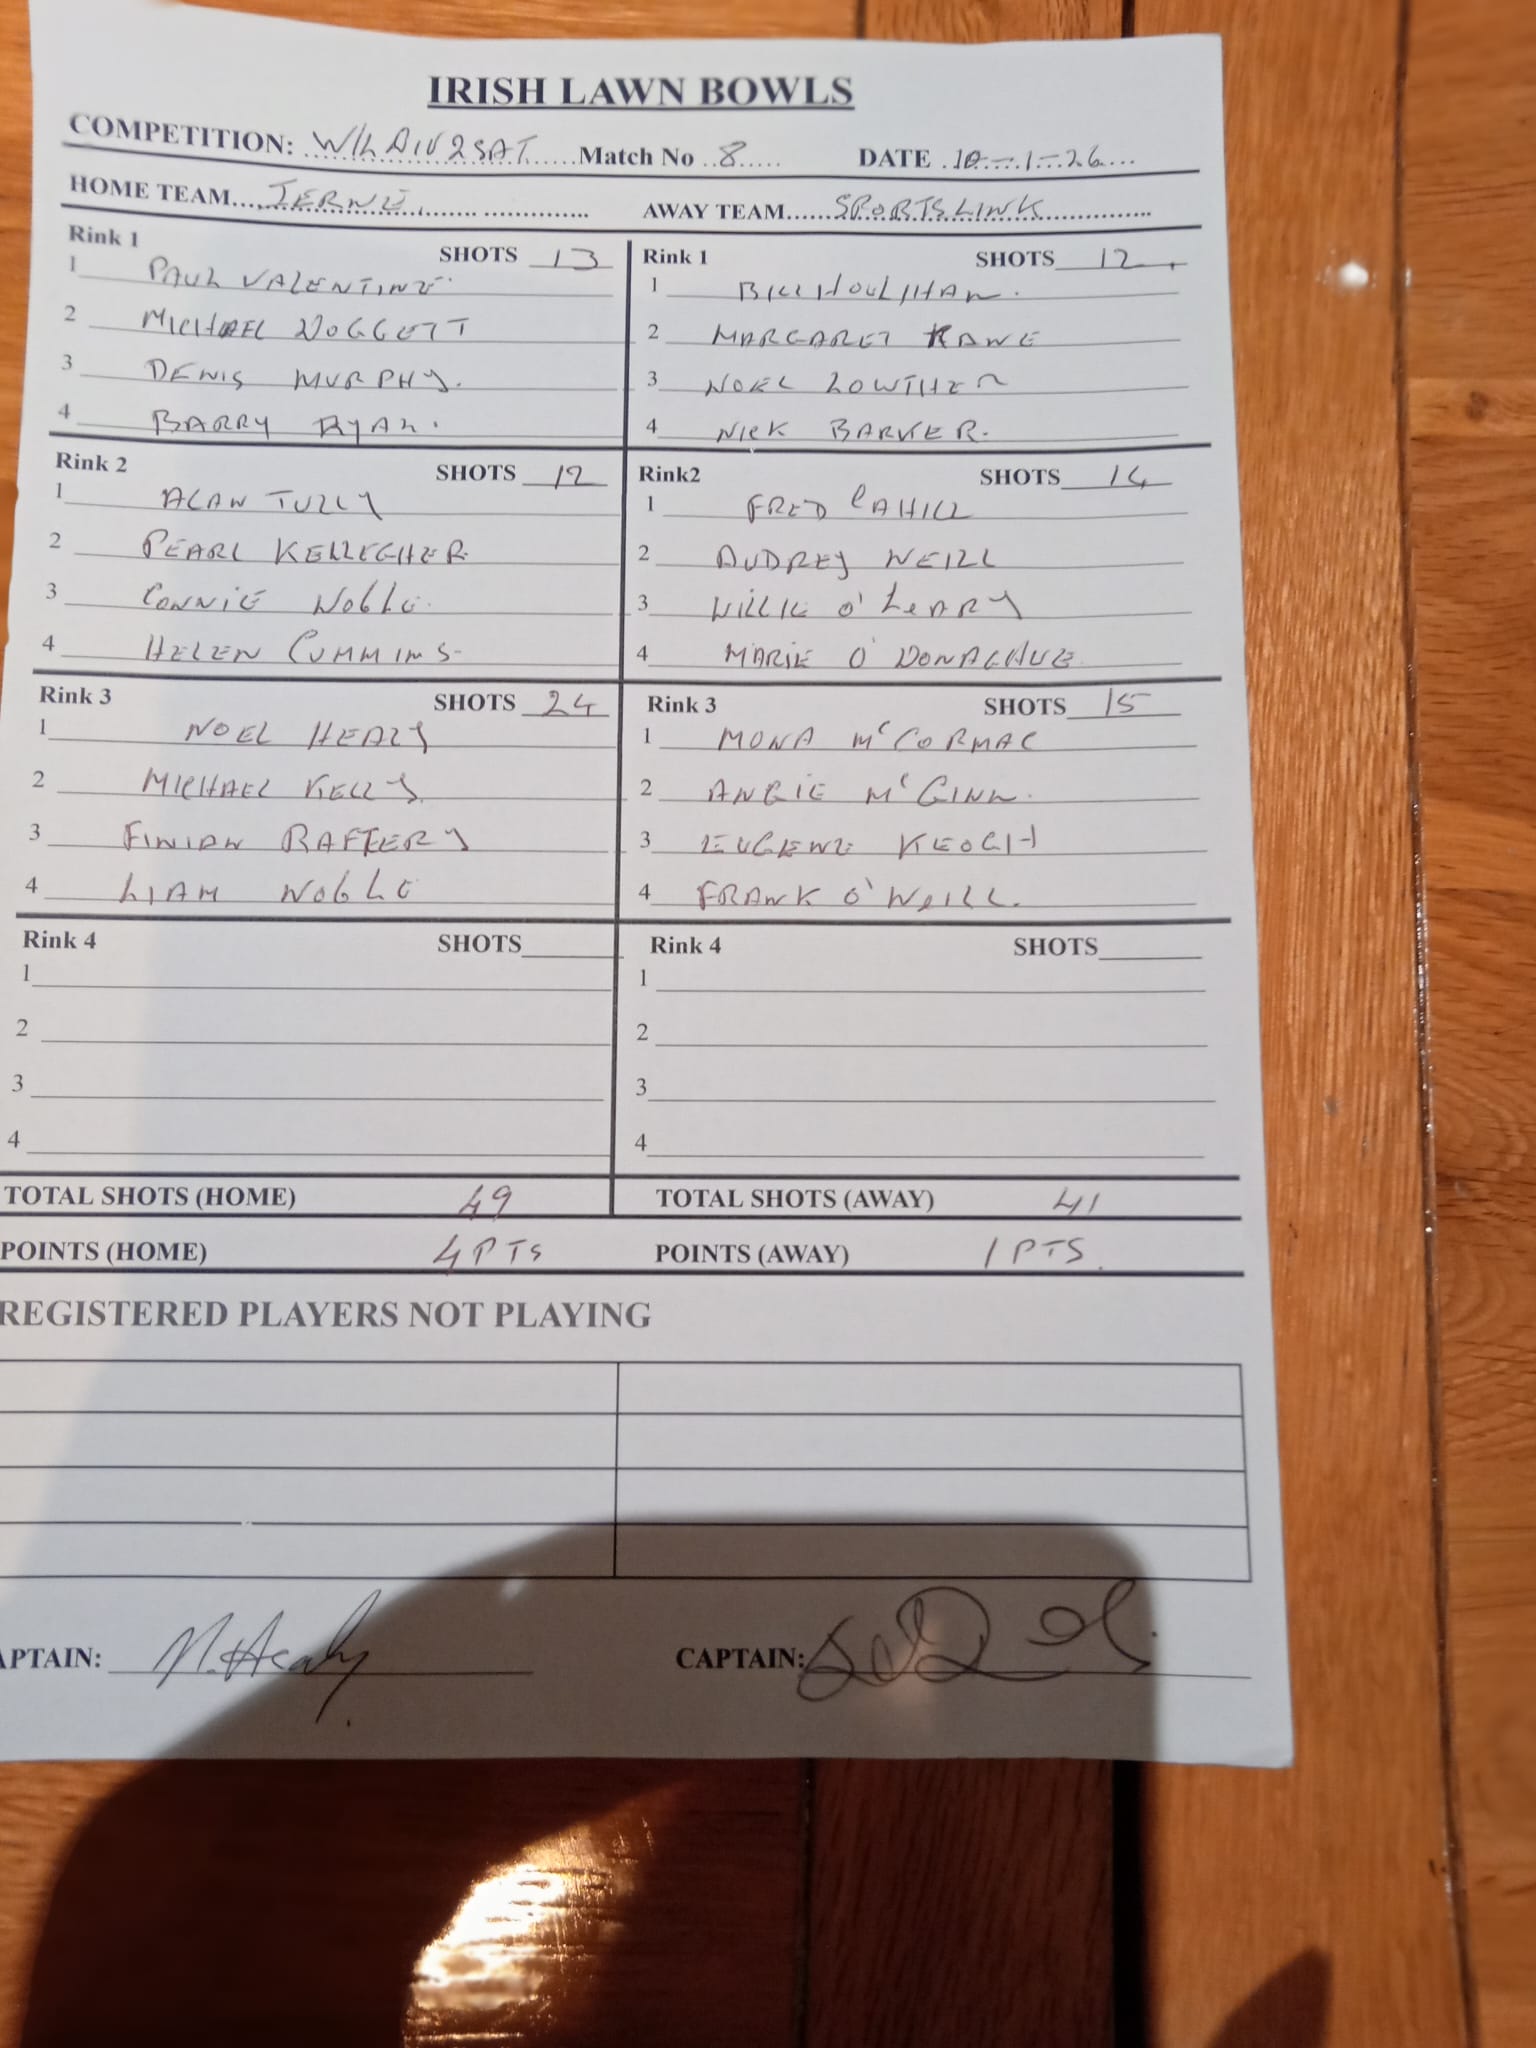 IRISH LAWN BOWLS
COMPETITION: W/L DIV 2 SAT Match No 8 DATE 10-1-26
HOME TEAM IERNE AWAY TEAM SPORTSLINK
Rink 1 SHOTS 13
1 PAUL VALENTINE
2 MICHAEL DOGGETT
3 DENIS MURPHY.
4 BARRY RYAN.
Rink 1 SHOTS 12
1 BILL HOULIHAN.
2 MARGARET KANE
3 NOEL LOWTHER
4 NICK BARKER.
Rink 2 SHOTS 12
1 ALAN TULLY
2 PEARL KELLEGHER
3 CONNIE NOBLE.
4 HELEN CUMMINS
Rink2 SHOTS 14
1 FRED CAHILL
2 AUDREY NEILL
3 WILLIE O'LEARY
4 MARIE O'DONAGHUE
Rink 3 SHOTS 24
1 NOEL HEALY
2 MICHAEL KELLY
3 FINIAN RAFTERY
4 LIAM NOBLE
Rink 3 SHOTS 15
1 MONA McCORMAC
2 ANGIE McGINN.
3 EUGENE KEOGH
4 FRANK O'NEILL.
Rink 4 SHOTS
1
2
3
4
Rink 4 SHOTS
1
2
3
4
TOTAL SHOTS (HOME) 49 TOTAL SHOTS (AWAY) 41
POINTS (HOME) 4 PTS POINTS (AWAY) 1 PTS.
REGISTERED PLAYERS NOT PLAYING
APTAIN: N. Healy CAPTAIN: